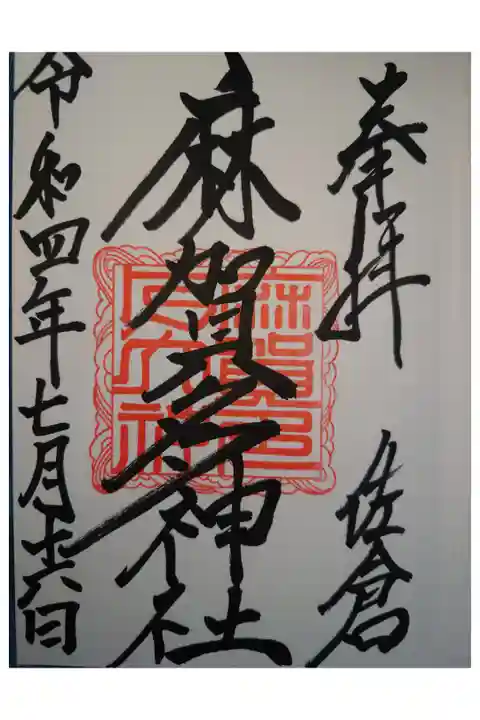 奉拝 佐倉
麻賀多神社
令和四年七月十六日
麻賀多